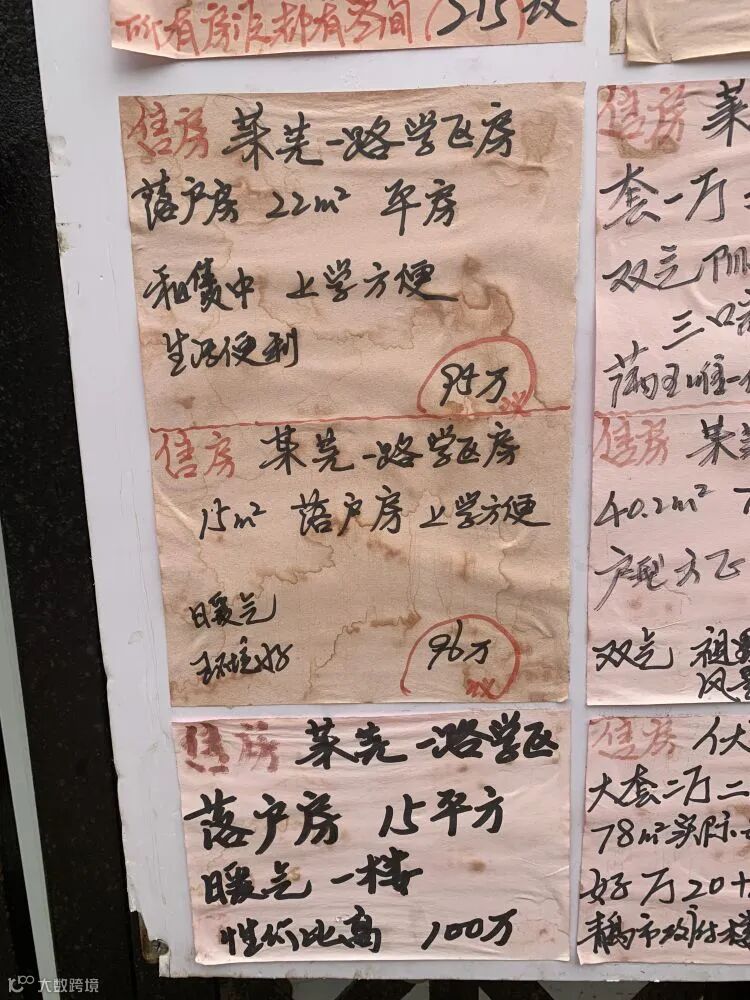 所有房源都有空间(315议
售房 莱芜一路学区房
落户房 22m² 平房
租赁中 上学方便
生活便利
95万
议
售房 莱芜一路学区房
15m² 落户房 上学方便
暖气
环境好
96万
议
售房 莱芜一路学区
落户房 15平方
暖气 一楼
性价比高 100万
售房 莱
套一厅
双气 阴
三口
满五唯一
售房 莱芜
40.2m²
户型方正
双气
售房
大套二厅二
78m²实际
好 万20+
青岛市政府楼
大数跨境